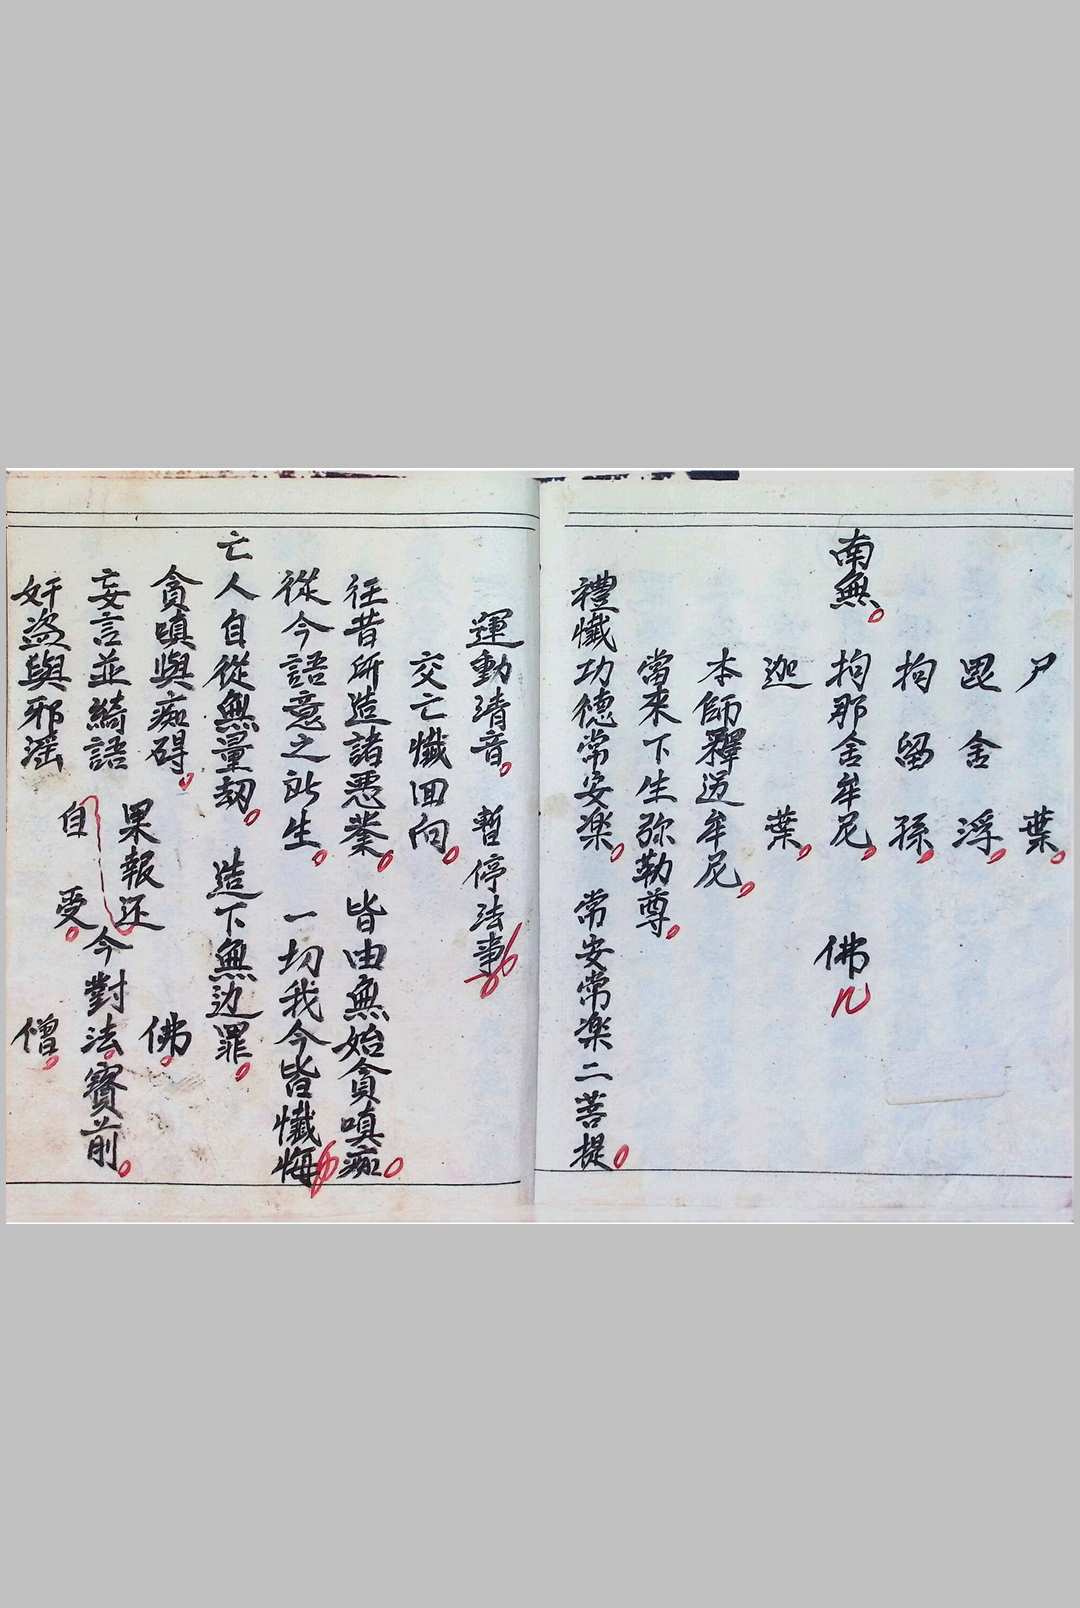 尸葉
毘舍浮
拘留孫
南無拘那舍牟尼佛
迦葉
本師釋迦牟尼
當来下生弥勒尊
禮懺功德常安楽常安常楽二菩提
運動清音暫停法事
交亡懺回向
往昔所造諸悪業皆由無始貪嗔痴
從今語意之所生一切我今皆懺悔
亡人自從無量劫造下無边罪
貪嗔與痴碍佛
果報还
妄言並綺語今對法寳前
自受
奸盗與邪滛僧